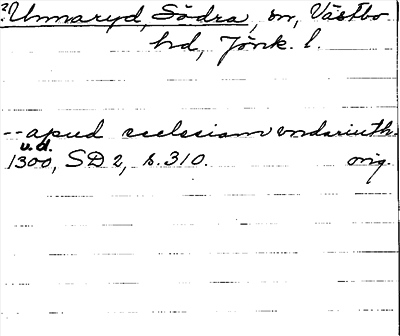 ?Unnaryd, Södra, sn, Västbo
hd, Jönk. l.
-- apud ecclesiam vndariuth.
u.d.
1300, SD 2, s. 310. orig.